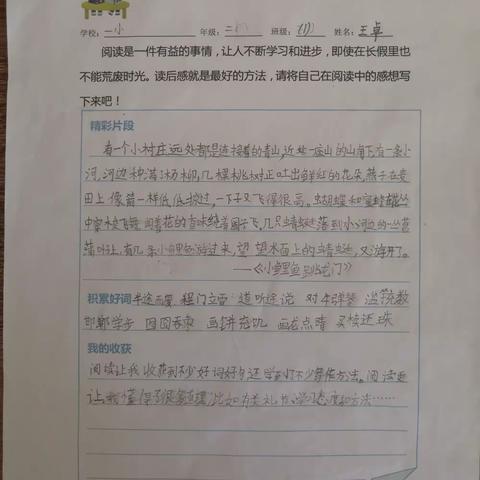 学校：一小 年级：二 班级：(1) 姓名：王卓
阅读是一件有益的事情，让人不断学习和进步，即使在长假里也
不能荒废时光。读后感就是最好的方法，请将自己在阅读中的感想写
下来吧！
精彩片段
有一个小村庄远处都是连接着的青山，近处一座山的山角下有一条小
河，河边种满杨柳，几棵桃树正吐出鲜红的花朵，燕子在麦
田上像箭一样低低掠过，一下子又飞得很高。蝴蝶和蜜蜂
着花的香味绕着圈子飞，几只蜻蜓落到小河边的
叶上，有几条小鲤鱼游过来，望望水面上的蜻蜓，又游开了。
——《小鲤鱼跳龙门》
积累好词 半途而废 程门立雪 道听途说 对牛弹琴 滥竽充数
邯郸学步 囫囵吞枣 画饼充饥 画龙点睛 买椟还珠
我的收获
阅读让我收获到不少好词好句还学到了不少写作方法。阅读更
让我懂得了很多道理，比如有关礼节、学习态度和方法……